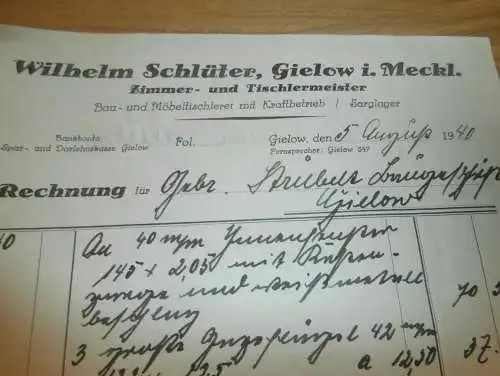 Wilhelm Schlüter, Gielow i. Meckl.
Zimmer- und Tischlermeister
Bau- und Möbeltischlerei mit Kraftbetrieb / Sarglager
Bankkonto
Spar- und Darlehnskasse Gielow
Fol.
Gielow, den 5 August 1940
Fernsprecher: Gielow 347
Rechnung für Gebr. Strübel Baugeschäft
Gielow
40 An 40 m/m
145 x 2,05 mit
und Weißmetall
beschlag 70 5
3 große 42 m/m
a 1250 37.